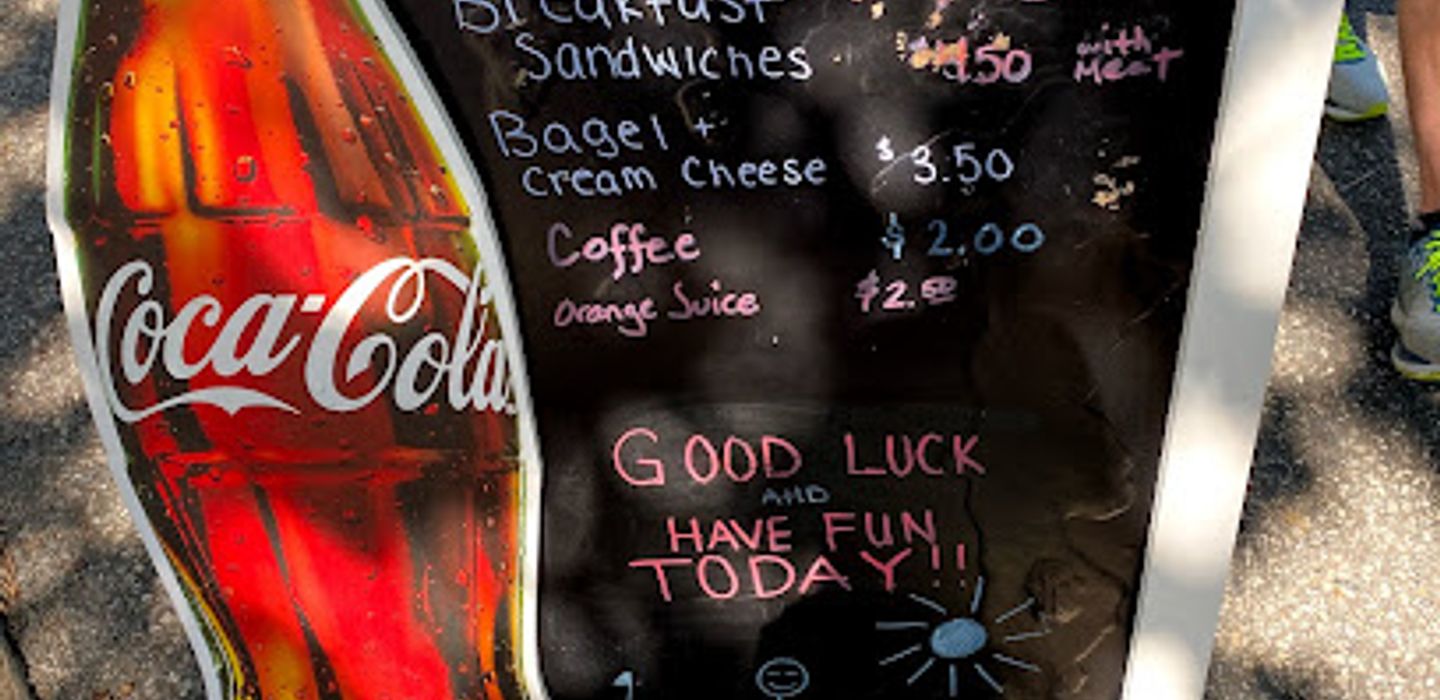 Breakfast
Sandwiches with
Meat
Bagel +
Cream Cheese $3.50
Coffee $2.00
Orange Juice $2.50
Coca-Cola
GOOD LUCK
AND
HAVE FUN
TODAY!!